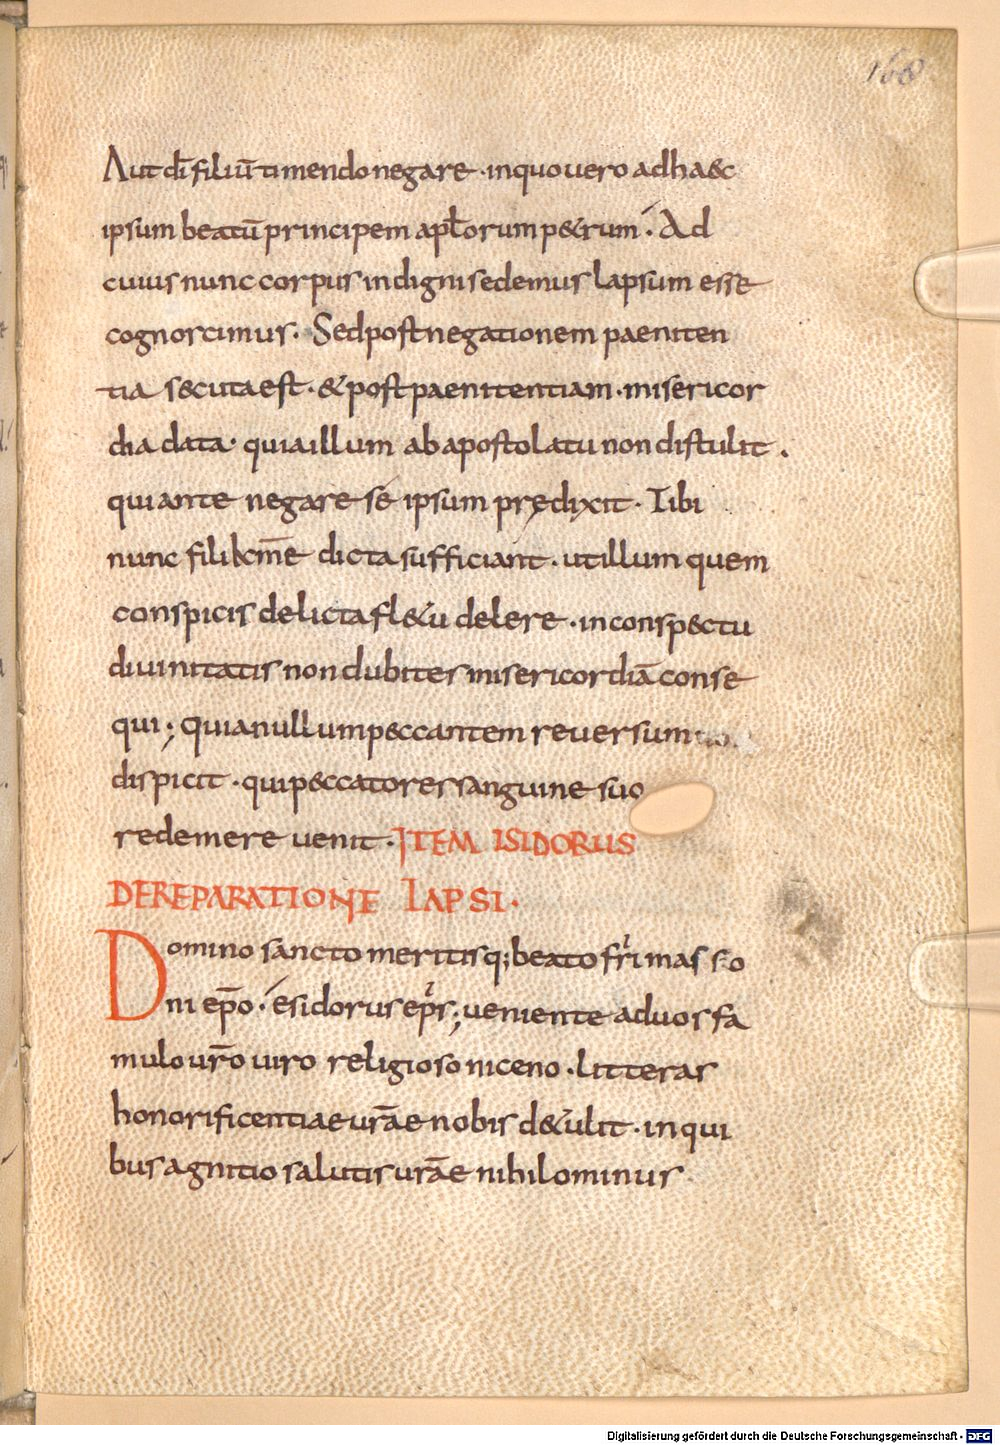 168
Aut di filiū timendo negare · in quo uero adhaec
ipsum beatū principem aplorum petrum · Ad
cuius nunc corpus indigni sedemus lapsum esse
cognoscimus · Sed post negationem paeniten
tia secuta est · & post paenitentiam · misericor
dia data · quia illum ab apostolatu non distulit ·
qui ante negare se ipsum prędixit · Tibi
nunc fili kme dicta sufficiant · ut illum quem
conspicis delicta fletu delere · in conspectu
diuinitatis non dubites misericordiā conse
qui ; quia nullum peccantem reuersum
dispicit · qui peccatores sanguine suo
redemere uenit · ITEM ISIDORUS
DE REPARATIONE LAPSI ·
Domino sancto meritisq; beato fri masso
ni epō · esidorus eps ; ueniente ad uos fa
mulo uro uiro religioso niceno · litteras
honorificentiae urae nobis detulit · in qui
bus agnitio salutis urae nihilominus
Digitalisierung gefördert durch die Deutsche Forschungsgemeinschaft - DFG